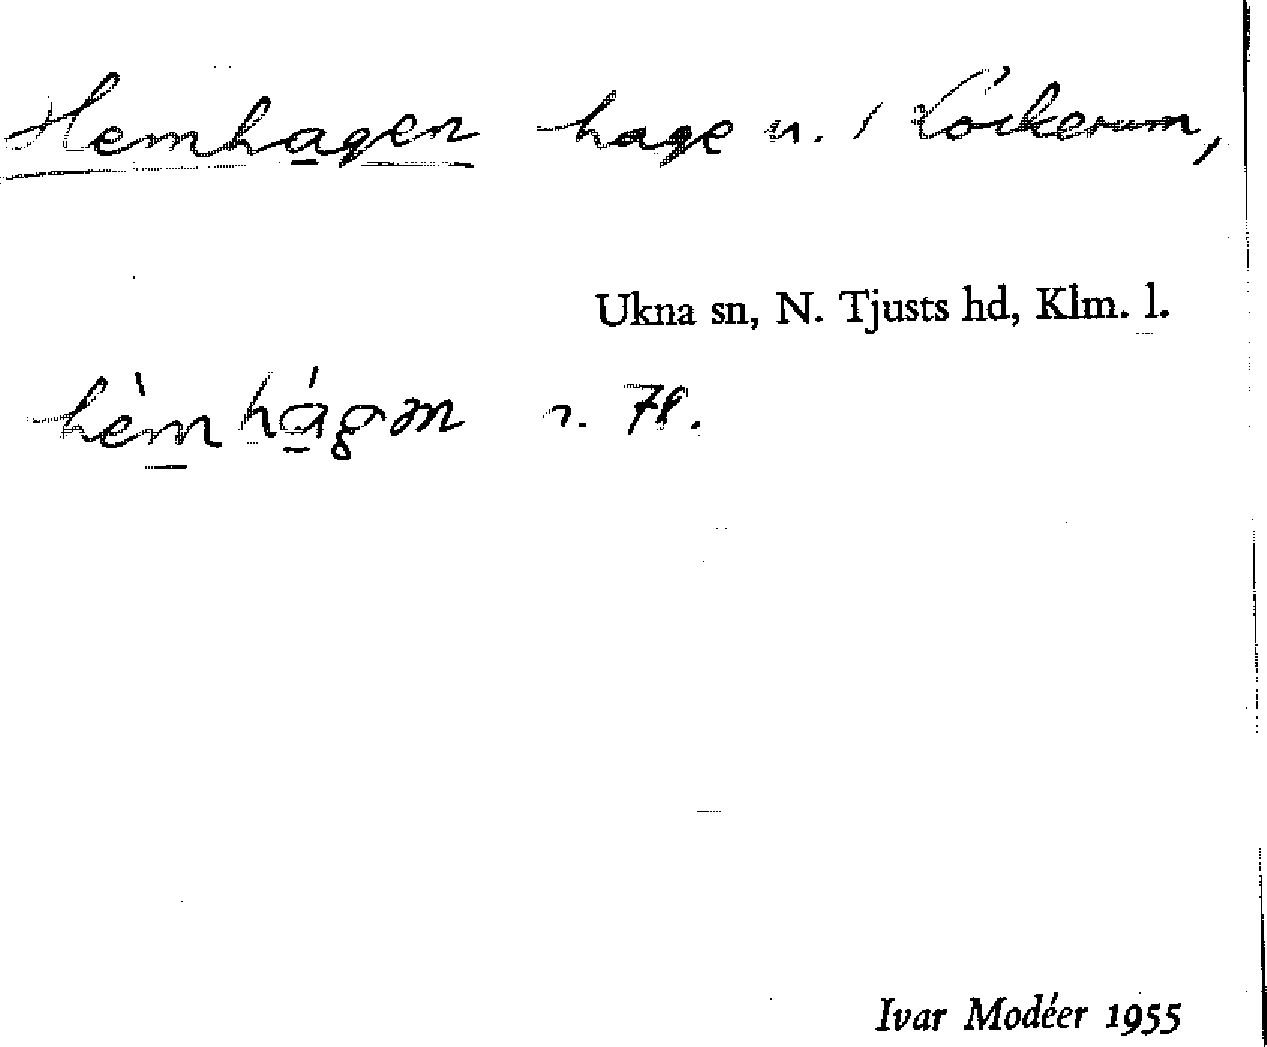 Hemhagen hage n. i Löckerum,
Ukna sn, N. Tjusts hd, Klm. l.
hèmhágən n. 78.
Ivar Modéer 1955